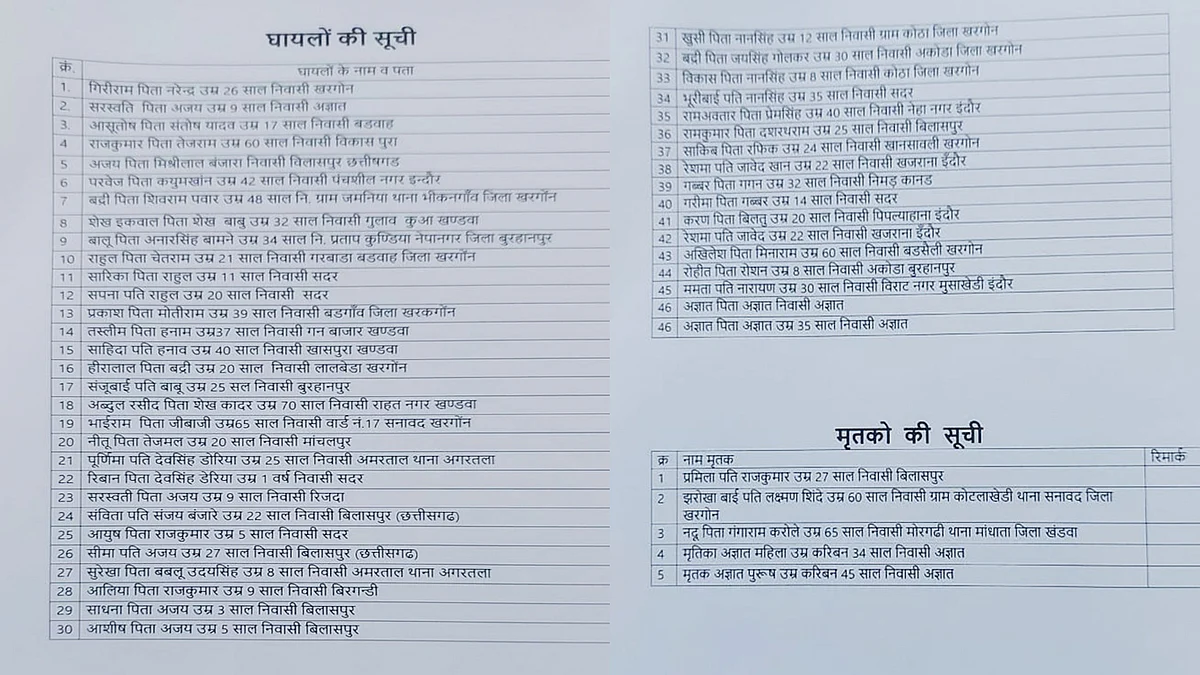 घायलों की सूची
क्रं. घायलों के नाम व पता
1. गिरीराम पिता नरेन्द्र उम्र 26 साल निवासी खरगोन
2. सरस्वति पिता अजय उम्र 9 साल निवासी अज्ञात
3. आसूतोष पिता संतोष यादव उम्र 17 साल निवासी बडवाह
4 राजकुमार पिता तेजराम उम्र 60 साल निवासी विकास पुरा
5 अजय पिता मिश्रीलाल बंजारा निवासी विलासपुर छत्तीषगड
6 परवेज पिता कयुमखांन उम्र 42 साल निवासी पंचशील नगर इन्दौर
7 बद्री पिता शिवराम पवार उम्र 48 साल नि. ग्राम जमनिया थाना भीकनगाँव जिला खरगोंन
8 शेख इकवाल पिता शेख बाबु उम्र 32 साल निवासी गुलाव कुआ खण्डवा
9 बालू पिता अनारसिंह बामने उम्र 34 साल नि. प्रताप कुण्डिया नेपानगर जिला बुरहानपुर
10 राहुल पिता चेतराम उम्र 21 साल निवासी गरबाडा बडवाह जिला खरगोंन
11 सारिका पिता राहुल उम्र 11 साल निवासी सदर
12 सपना पति राहुल उम्र 20 साल निवासी सदर
13 प्रकाश पिता मोतीराम उम्र 39 साल निवासी बडगाँव जिला खरकगोंन
14 तस्लीम पिता हनाम उम्र37 साल निवासी गन बाजार खण्डवा
15 साहिदा पति हनाव उम्र 40 साल निवासी खासपुरा खण्डवा
16 हीरालाल पिता बद्री उम्र 20 साल निवासी लालबेडा खरगोंन
17 संजूबाई पति बाबू उम्र 25 सल निवासी बुरहानपुर
18 अब्दुल रसीद पिता शेख कादर उम्र 70 साल निवासी राहत नगर खण्डवा
19 भाईराम पिता जीबाजी उम्र65 साल निवासी वार्ड नं.17 सनावद खरगोंन
20 नीतू पिता तेजमल उम्र 20 साल निवासी मांचलपुर
21 पूर्णिमा पति देवसिंह डोरिया उम्र 25 साल निवासी अमरताल थाना अगरतला
22 रिबान पिता देवसिंह डेरिया उम्र 1 वर्ष निवासी सदर
23 सरस्वती पिता अजय उम्र 9 साल निवासी रिजदा
24 संविता पति संजय बंजारे उम्र 22 साल निवासी बिलासपुर (छत्तीसगढ)
25 आयुष पिता राजकुमार उम्र 5 साल निवासी सदर
26 सीमा पति अजय उम्र 27 साल निवासी बिलासपुर (छत्तीसगढ)
27 सुरेखा पिता बबलू उदयसिंह उम्र 8 साल निवासी अमरताल थाना अगरतला
28 आलिया पिता राजकुमार उम्र 9 साल निवासी बिरगन्डी
29 साधना पिता अजय उम्र 3 साल निवासी बिलासपुर
30 आशीष पिता अजय उम्र 5 साल निवासी बिलासपुर
31 खुसी पिता नानसिंह उम्र 12 साल निवासी ग्राम कोठा जिला खरगोन
32 बद्री पिता जयसिंह गोलकर उम्र 30 साल निवासी अकोडा जिला खरगोन
33 विकास पिता नानसिंह उम्र 8 साल निवासी कोठा जिला खरगोन
34 भूरीबाई पति नानसिंह उम्र 35 साल निवासी सदर
35 रामअवतार पिता प्रेमसिंह उम्र 40 साल निवासी नेहा नगर इंदौर
36 रामकुमार पिता दशरथराम उम्र 25 साल निवासी बिलासपुर
37 साकिब पिता रफिक उम्र 24 साल निवासी खानसावली खरगोन
38 रेशमा पति जावेद खान उम्र 22 साल निवासी खजराना इंदौर
39 गब्बर पिता गगन उम्र 32 साल निवासी निमड़ कानड
40 गरीमा पिता गब्बर उम्र 14 साल निवासी सदर
41 करण पिता बिलतु उम्र 20 साल निवासी पिपल्याहाना इंदौर
42 रेशमा पति जावेद उम्र 22 साल निवासी खजराना इंदौर
43 अखिलेश पिता मिनाराम उम्र 60 साल निवासी बडसैली खरगोन
44 रोहीत पिता रोशन उम्र 8 साल निवासी अकोडा बुरहानपुर
45 ममता पति नारायण उम्र 30 साल निवासी विराट नगर मुसाखेडी इंदौर
46 अज्ञात पिता अज्ञात निवासी अज्ञात
46 अज्ञात पिता अज्ञात उम्र 35 साल निवासी अज्ञात
मृतको की सूची
क्र नाम मृतक रिमार्क
1 प्रमिला पति राजकुमार उम्र 27 साल निवासी बिलासपुर
2 झरोखा बाई पति लक्ष्मण शिंदे उम्र 60 साल निवासी ग्राम कोटलाखेडी थाना सनावद जिला
खरगोन
3 नदू पिता गंगाराम करोले उम्र 65 साल निवासी मोरगढी थाना मांधाता जिला खंडवा
4 मृतिका अज्ञात महिला उम्र करिबन 34 साल निवासी अज्ञात
5 मृतक अज्ञात पुरूष उम्र करिबन 45 साल निवासी अज्ञात